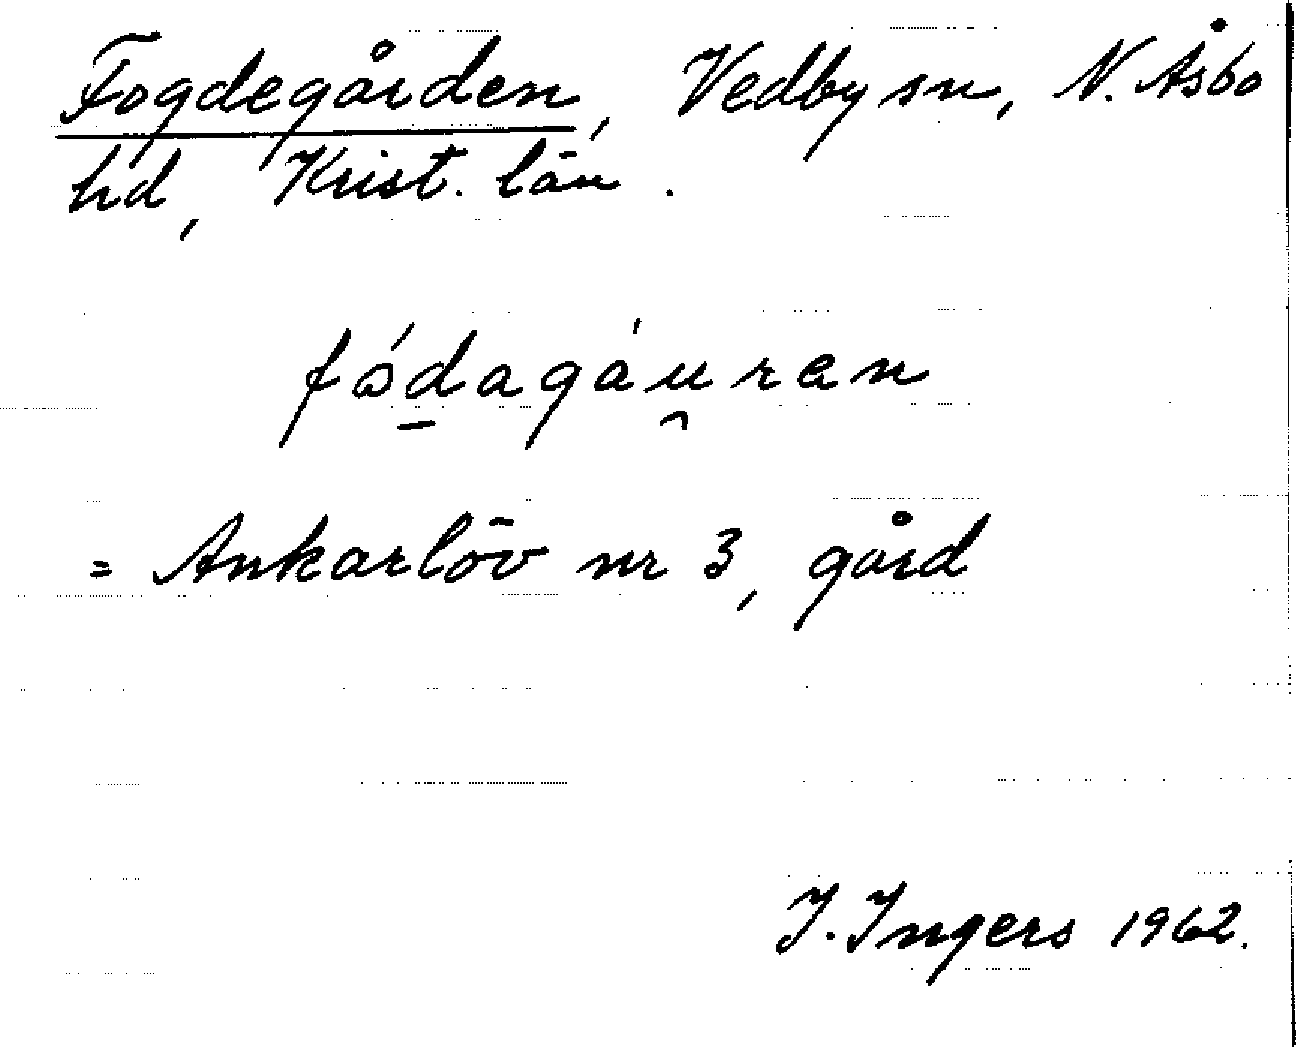 Fogdegården, Vedby sn, N. Åsbo
hd, Krist. län.
fódagáu̯ran
= Ankarlöv nr 3, gård
I. Ingers 1962.